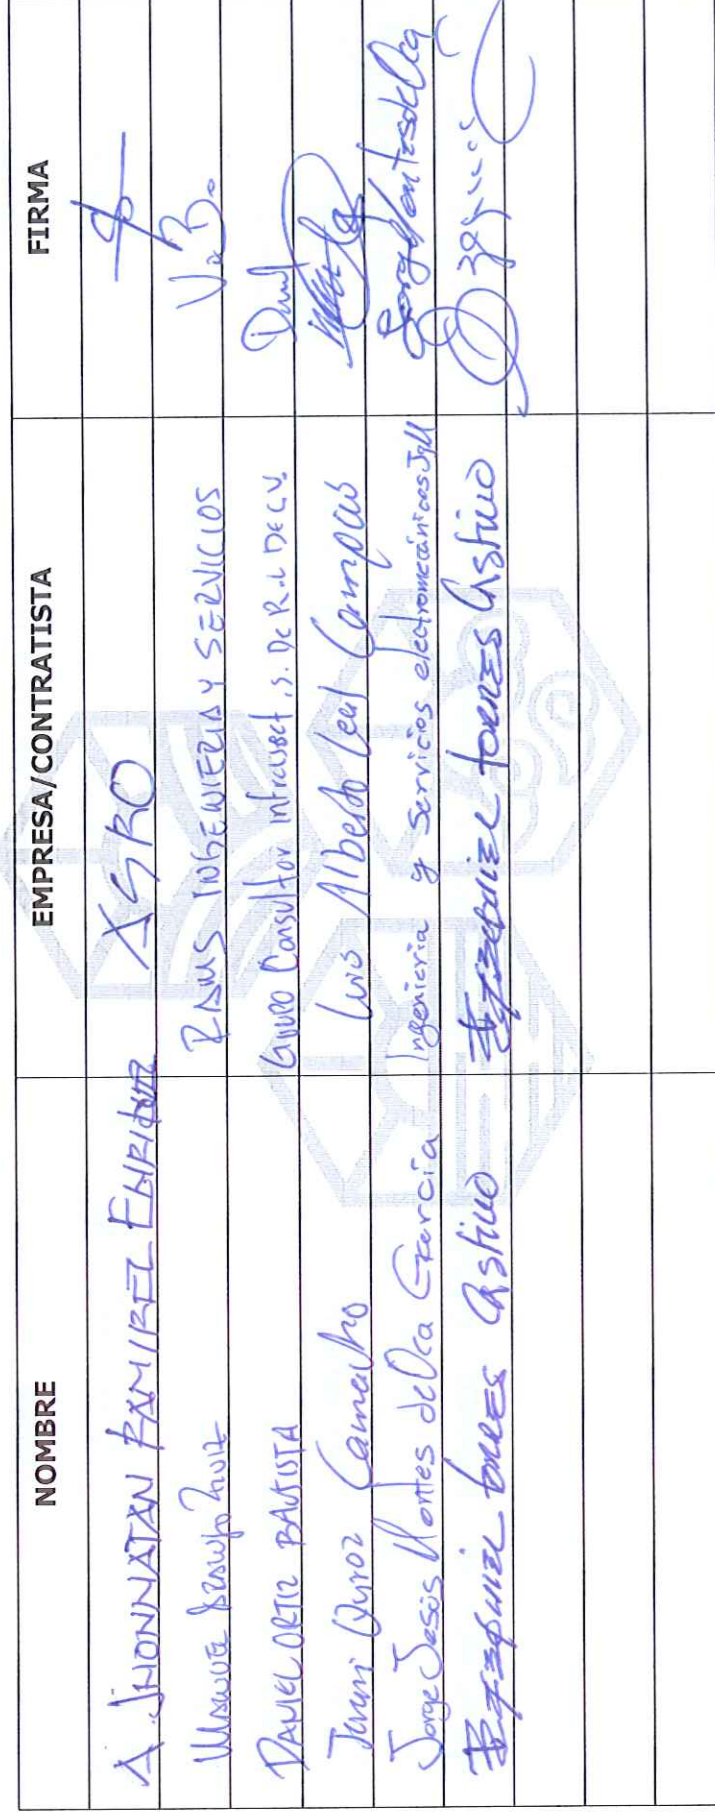 NOMBRE EMPRESA/CONTRATISTA FIRMA
A. JHONNATAN RAMIREZ ENRIQUEZ ASRO
MANUEL RUIZ RAMS INGENIERIA Y SERVICIOS V.B.
DANIEL ORTIZ BAUTISTA GRUPO Consultor Infraset, S. De R.L DE C.V. Daniel
Quiroz Camacho Luis Alberto Leal Campos
Jorge Jesús Montes de Oca García Ingeniería y Servicios electromecánicos JgM Jorge Montes de Oca
Ezequiel TORRES Castillo Ezequiel TORRES Castillo